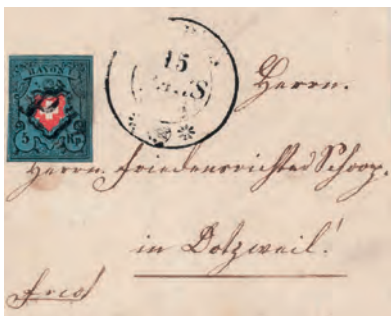 RAYON I
5 Rp.
15
Herrn.
Herrn. Friedensrichter Schoop.
in Dotzweil!
Frco